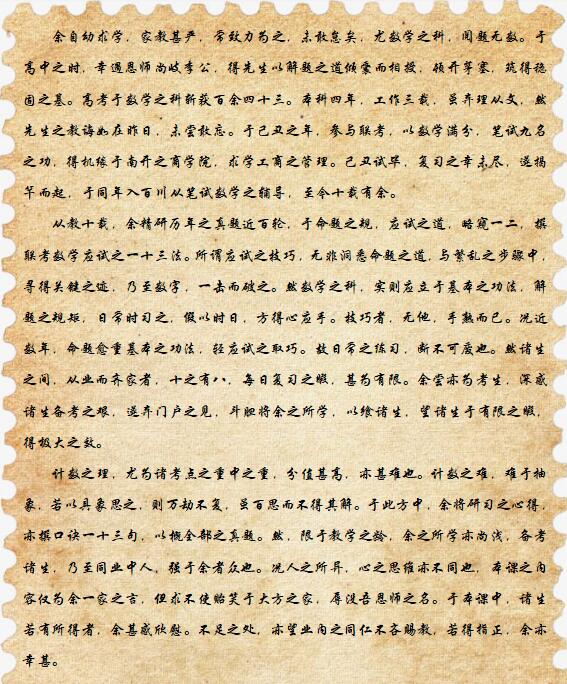 余自幼求学，家教甚严，常致力为之，未敢怠矣，尤数学之科，阅题无数。于
高中之时，幸遇恩师尚岐李公，得先生以解题之道倾囊而相授，顿开茅塞，筑得稳
固之基。高考于数学之科斩获百余四十三。本科四年，工作三载，虽弃理从文，然
先生之教诲如在昨日，未尝敢忘。于己丑之年，参与联考，以数学满分，笔试九名
之功，得机缘于南开之商学院，求学工商之管理。己丑试毕，复习之幸未尽，遂揭
竿而起，于同年入百川从笔试数学之辅导，至今十载有余。
从教十载，余精研历年之真题近百轮，于命题之规，应试之道，略窥一二，撰
联考数学应试之一十三法。所谓应试之技巧，无非洞悉命题之道，与繁乱之步骤中，
寻得关键之迹，乃至数字，一击而破之。然数学之科，实则应立于基本之功法，解
题之规矩，日常时习之，假以时日，方得心应手。技巧者，无他，手熟而已。况近
数年，命题愈重基本之功法，轻应试之取巧。故日常之练习，断不可废也。然诸生
之间，从业而齐家者，十之有八，每日复习之暇，甚为有限。余尝亦为考生，深感
诸生备考之艰，遂弃门户之见，斗胆将余之所学，以飨诸生，望诸生于有限之暇，
得极大之效。
计数之理，尤为诸考点之重中之重，分值甚高，亦甚难也。计数之难，难于抽
象，若以具象思之，则万劫不复，虽百思而不得其解。于此方中，余将研习之心得，
亦撰口诀一十三句，以概全部之真题。然，限于教学之龄，余之所学亦尚浅，备考
诸生，乃至同业中人，强于余者众也。况人之所异，心之思维亦不同也，本课之内
容仅为余一家之言，但求不使贻笑于大方之家，辱没吾恩师之名。于本课中，诸生
若有所得者，余甚感欣慰。不足之处，亦望业内之同仁不吝赐教，若得指正，余亦
幸甚。